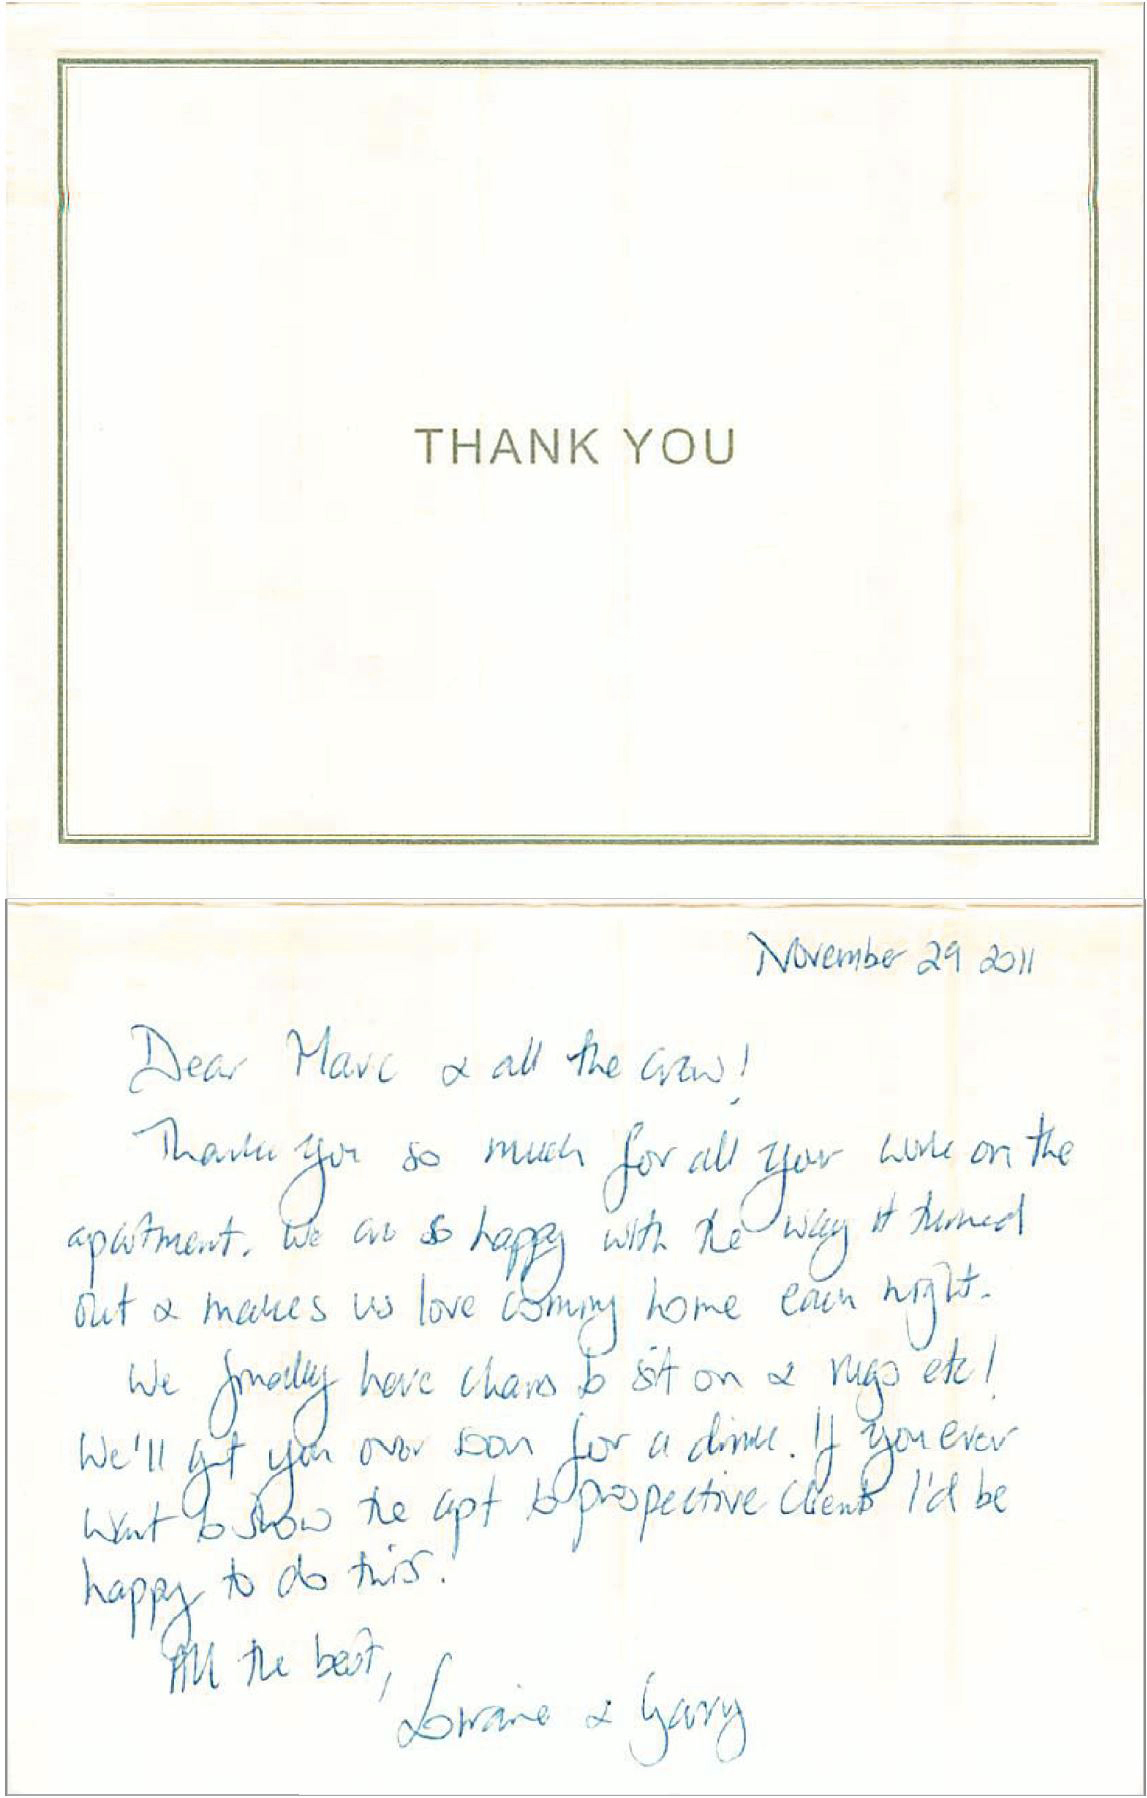 THANK YOU
November 29 2011
Dear Marc & all the crew!
Thank you so much for all your work on the
apartment. We are so happy with the way it turned
out & makes us love coming home each night.
We finally have chairs to sit on & rugs etc!
We'll get you over soon for a drink. If you ever
want to show the apt to prospective clients I'd be
happy to do this.
All the best,
Lorraine & Gary